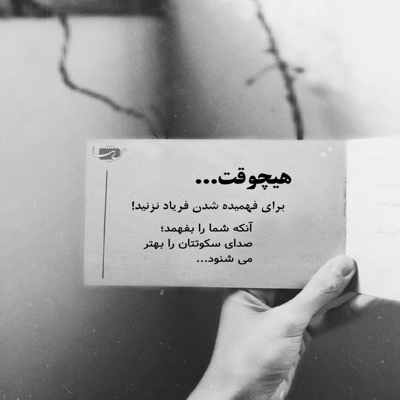 هیچوقت...
برای فهمیده شدن فریاد نزنید!
آنکه شما را بفهمد؛
صدای سکوتتان را بهتر
می شنود...